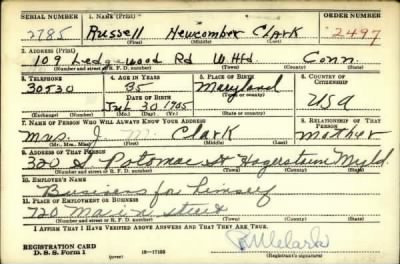 SERIAL NUMBER 1. NAME (Print) ORDER NUMBER
2785 Russell Newcomber Clark 2497
(First) (Middle) (Last)
2. ADDRESS (Print)
109 Ledgewood Rd W. Htfd. Conn.
(Number and street or R. F. D. number) (Town) (County) (State)
3. TELEPHONE 4. AGE IN YEARS 5. PLACE OF BIRTH 6. COUNTRY OF CITIZENSHIP
30530 35 Maryland
DATE OF BIRTH (Town or county)
30 1905 USA
(Exchange) (Number) (Mo.) (Day) (Yr.) (State or country)
7. NAME OF PERSON WHO WILL ALWAYS KNOW YOUR ADDRESS 8. RELATIONSHIP OF THAT PERSON
Mrs. J. M. Clark mother
(Mr., Mrs., Miss) (First) (Middle) (Last)
9. ADDRESS OF THAT PERSON
320 S. Potomac St Hagerstown Myld.
(Number and street or R. F. D. number) (Town) (County) (State)
10. EMPLOYER'S NAME
Business for himself
11. PLACE OF EMPLOYMENT OR BUSINESS
720 Main street
(Number and street or R. F. D. number) (Town) (County) (State)
I AFFIRM THAT I HAVE VERIFIED ABOVE ANSWERS AND THAT THEY ARE TRUE.
REGISTRATION CARD
D. S. S. Form 1 16—17105 (Registrant's signature)